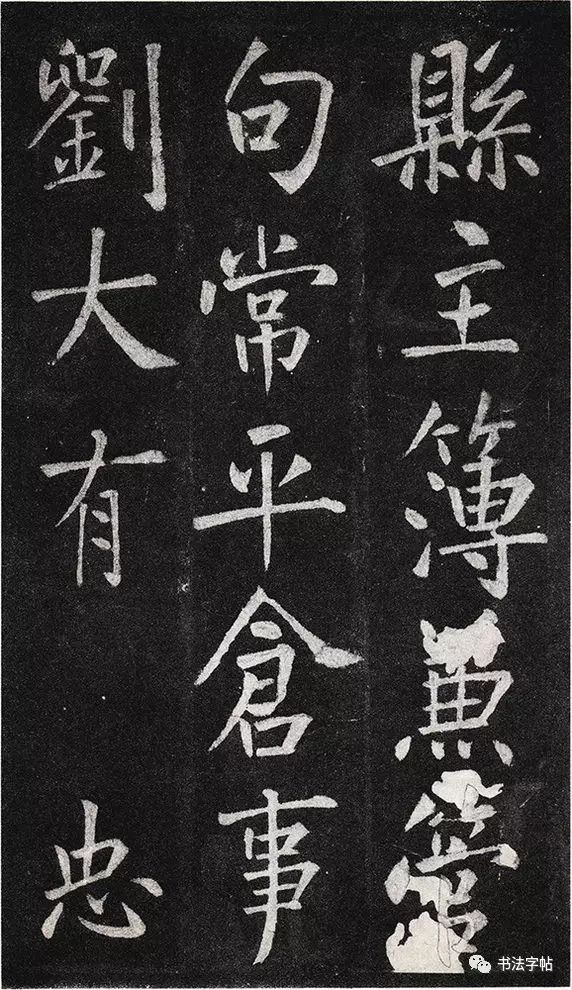 縣主簿兼管
句常平倉事
劉大有 忠
书法字帖